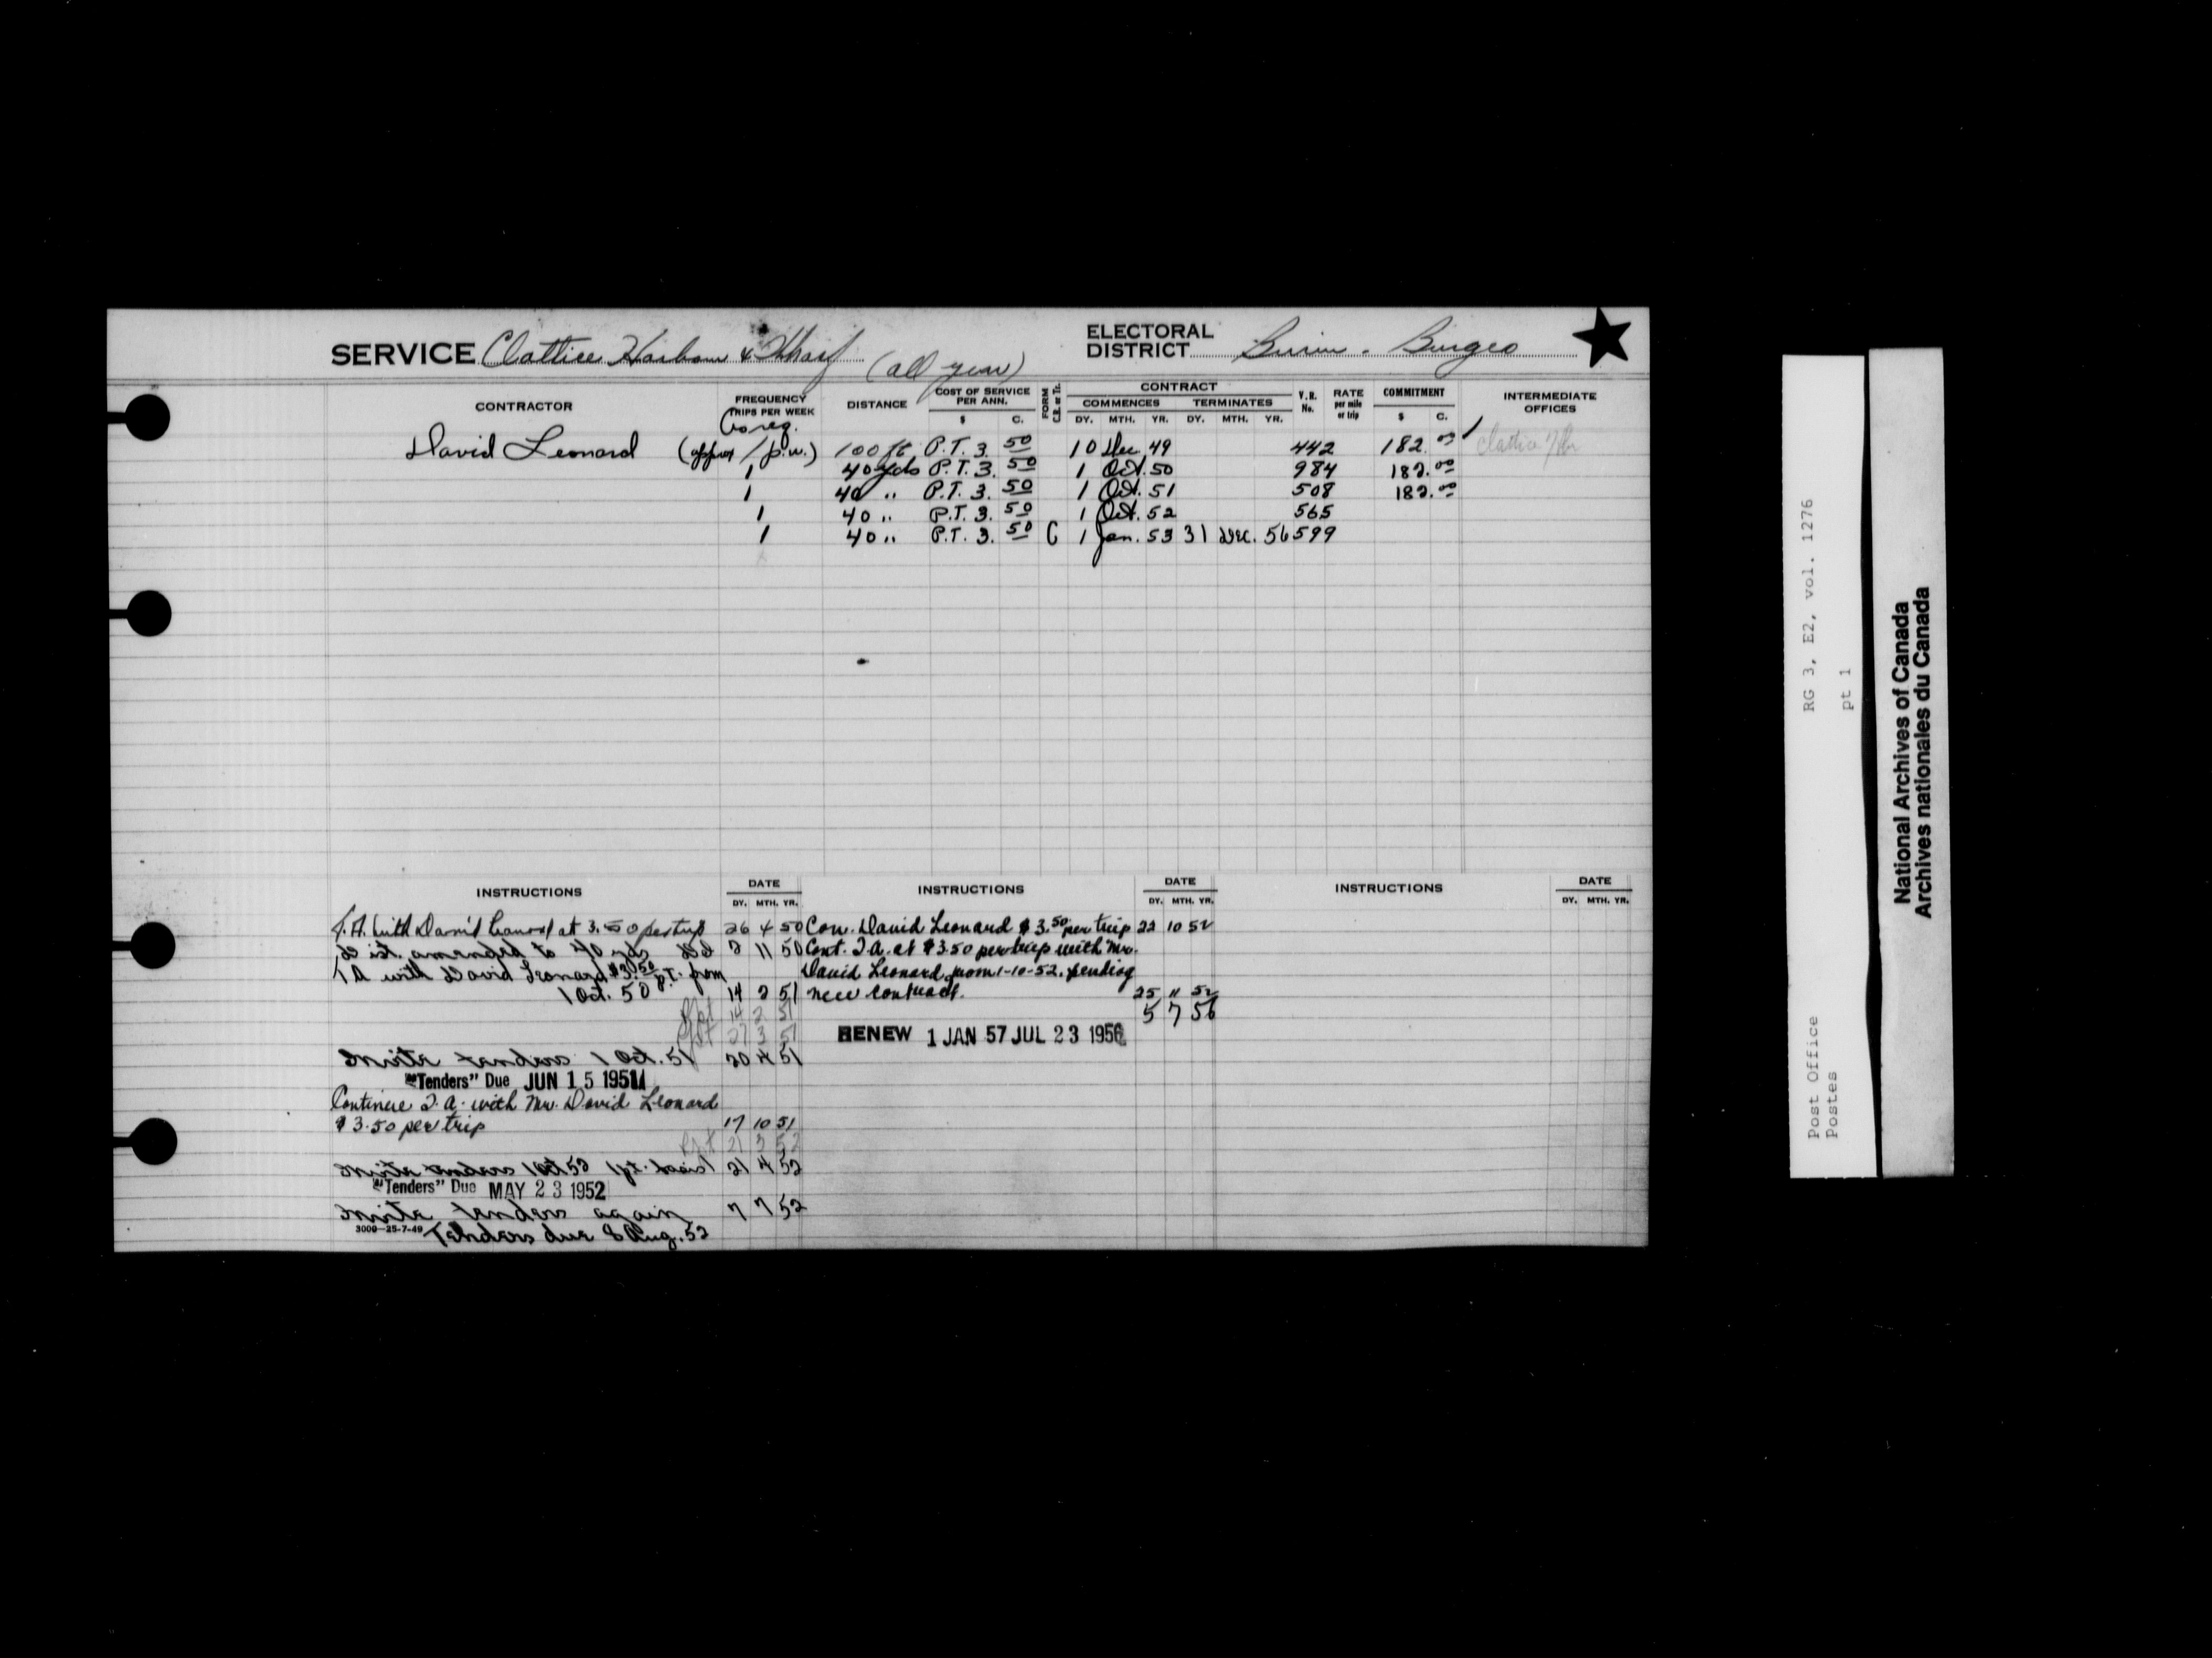 SERVICE Clattice Harbour & Wharf (all year)
ELECTORAL DISTRICT Burin - Burgeo
CONTRACTOR
FREQUENCY TRIPS PER WEEK
DISTANCE
COST OF SERVICE PER ANN. $ C.
FORM C.B. or Tr.
CONTRACT
COMMENCES TERMINATES
DY. MTH. YR. DY. MTH. YR.
V.R. No.
RATE per mile or trip
COMMITMENT $ C.
INTERMEDIATE OFFICES
As req.
David Leonard (approx 1 p.w.) 100 ft P.T. 3.50 10 Dec. 49 442 182.00
1 40 yds P.T. 3.50 1 Oct. 50 984 182.00
1 40 " P.T. 3.50 1 Oct. 51 508 182.00
1 40 " P.T. 3.50 1 Oct. 52 565
1 40 " P.T. 3.50 C 1 Jan. 53 31 Dec. 56 599
INSTRUCTIONS DATE DY. MTH. YR.
T.A. with David Leonard at 3.50 per trip 26 4 50
Dist. amended to 40 yds 2 11 50
T A with David Leonard $3.50 P.T. from
1 Oct. 50 14 2 51
14 2 51
27 3 51
Invite tenders 1 Oct. 51 20 4 51
"Tenders" Due JUN 15 1951
Continue T.A. with Mr. David Leonard
$3.50 per trip 17 10 51
21 3 52
Invite tenders 1 Oct 52 (p.t. basis) 21 4 52
"Tenders" Due MAY 23 1952
Invite tenders again 7 7 52
3000-25-7-49
Tenders due 8 Aug. 52
INSTRUCTIONS DATE DY. MTH. YR.
Con. David Leonard $3.50 per trip 22 10 52
Cont. T.A. at $3.50 per trip with Mr.
David Leonard from 1-10-52, pending
new contract. 25 11 52
5 7 56
RENEW 1 JAN 57 JUL 23 1956
INSTRUCTIONS DATE DY. MTH. YR.
RG 3, E2, vol. 1276
pt 1
Post Office
Postes
National Archives of Canada
Archives nationales du Canada